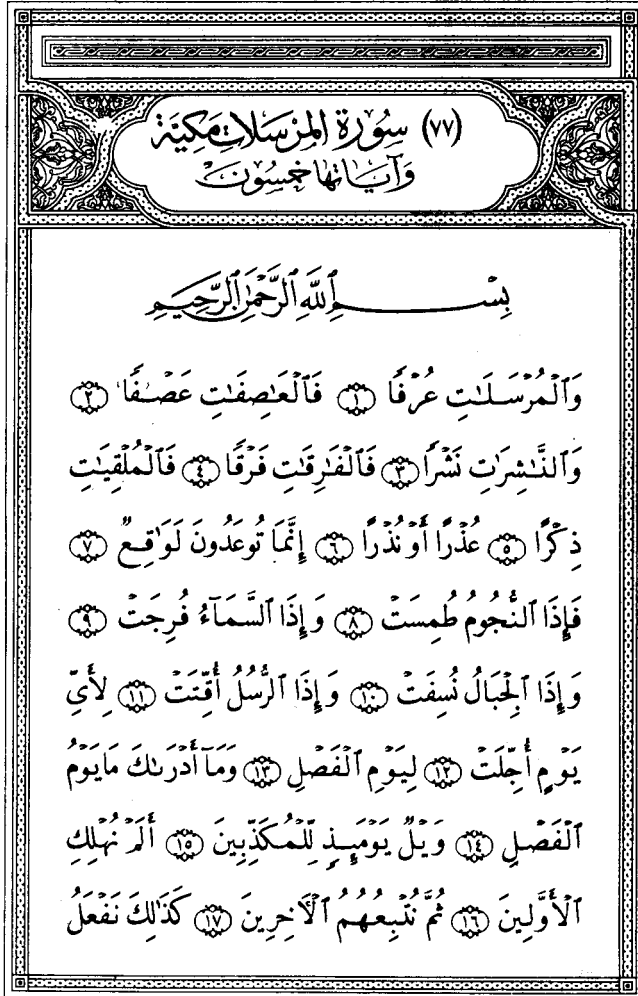 (٧٧) سُورَةُ المُرْسَلَاتِ مَكِّيَّة
وَآيَاتُهَا خَمْسُونَ
بِسْمِ ٱللَّهِ ٱلرَّحْمَٰنِ ٱلرَّحِيمِ
وَٱلْمُرْسَلَٰتِ عُرْفًا ١ فَٱلْعَٰصِفَٰتِ عَصْفًا ٢
وَٱلنَّٰشِرَٰتِ نَشْرًا ٣ فَٱلْفَٰرِقَٰتِ فَرْقًا ٤ فَٱلْمُلْقِيَٰتِ
ذِكْرًا ٥ عُذْرًا أَوْ نُذْرًا ٦ إِنَّمَا تُوعَدُونَ لَوَٰقِعٌ ٧
فَإِذَا ٱلنُّجُومُ طُمِسَتْ ٨ وَإِذَا ٱلسَّمَآءُ فُرِجَتْ ٩
وَإِذَا ٱلْجِبَالُ نُسِفَتْ ١٠ وَإِذَا ٱلرُّسُلُ أُقِّتَتْ ١١ لِأَيِّ
يَوْمٍ أُجِّلَتْ ١٢ لِيَوْمِ ٱلْفَصْلِ ١٣ وَمَآ أَدْرَىٰكَ مَا يَوْمُ
ٱلْفَصْلِ ١٤ وَيْلٌ يَوْمَئِذٍ لِّلْمُكَذِّبِينَ ١٥ أَلَمْ نُهْلِكِ
ٱلْأَوَّلِينَ ١٦ ثُمَّ نُتْبِعُهُمُ ٱلْأٓخِرِينَ ١٧ كَذَٰلِكَ نَفْعَلُ